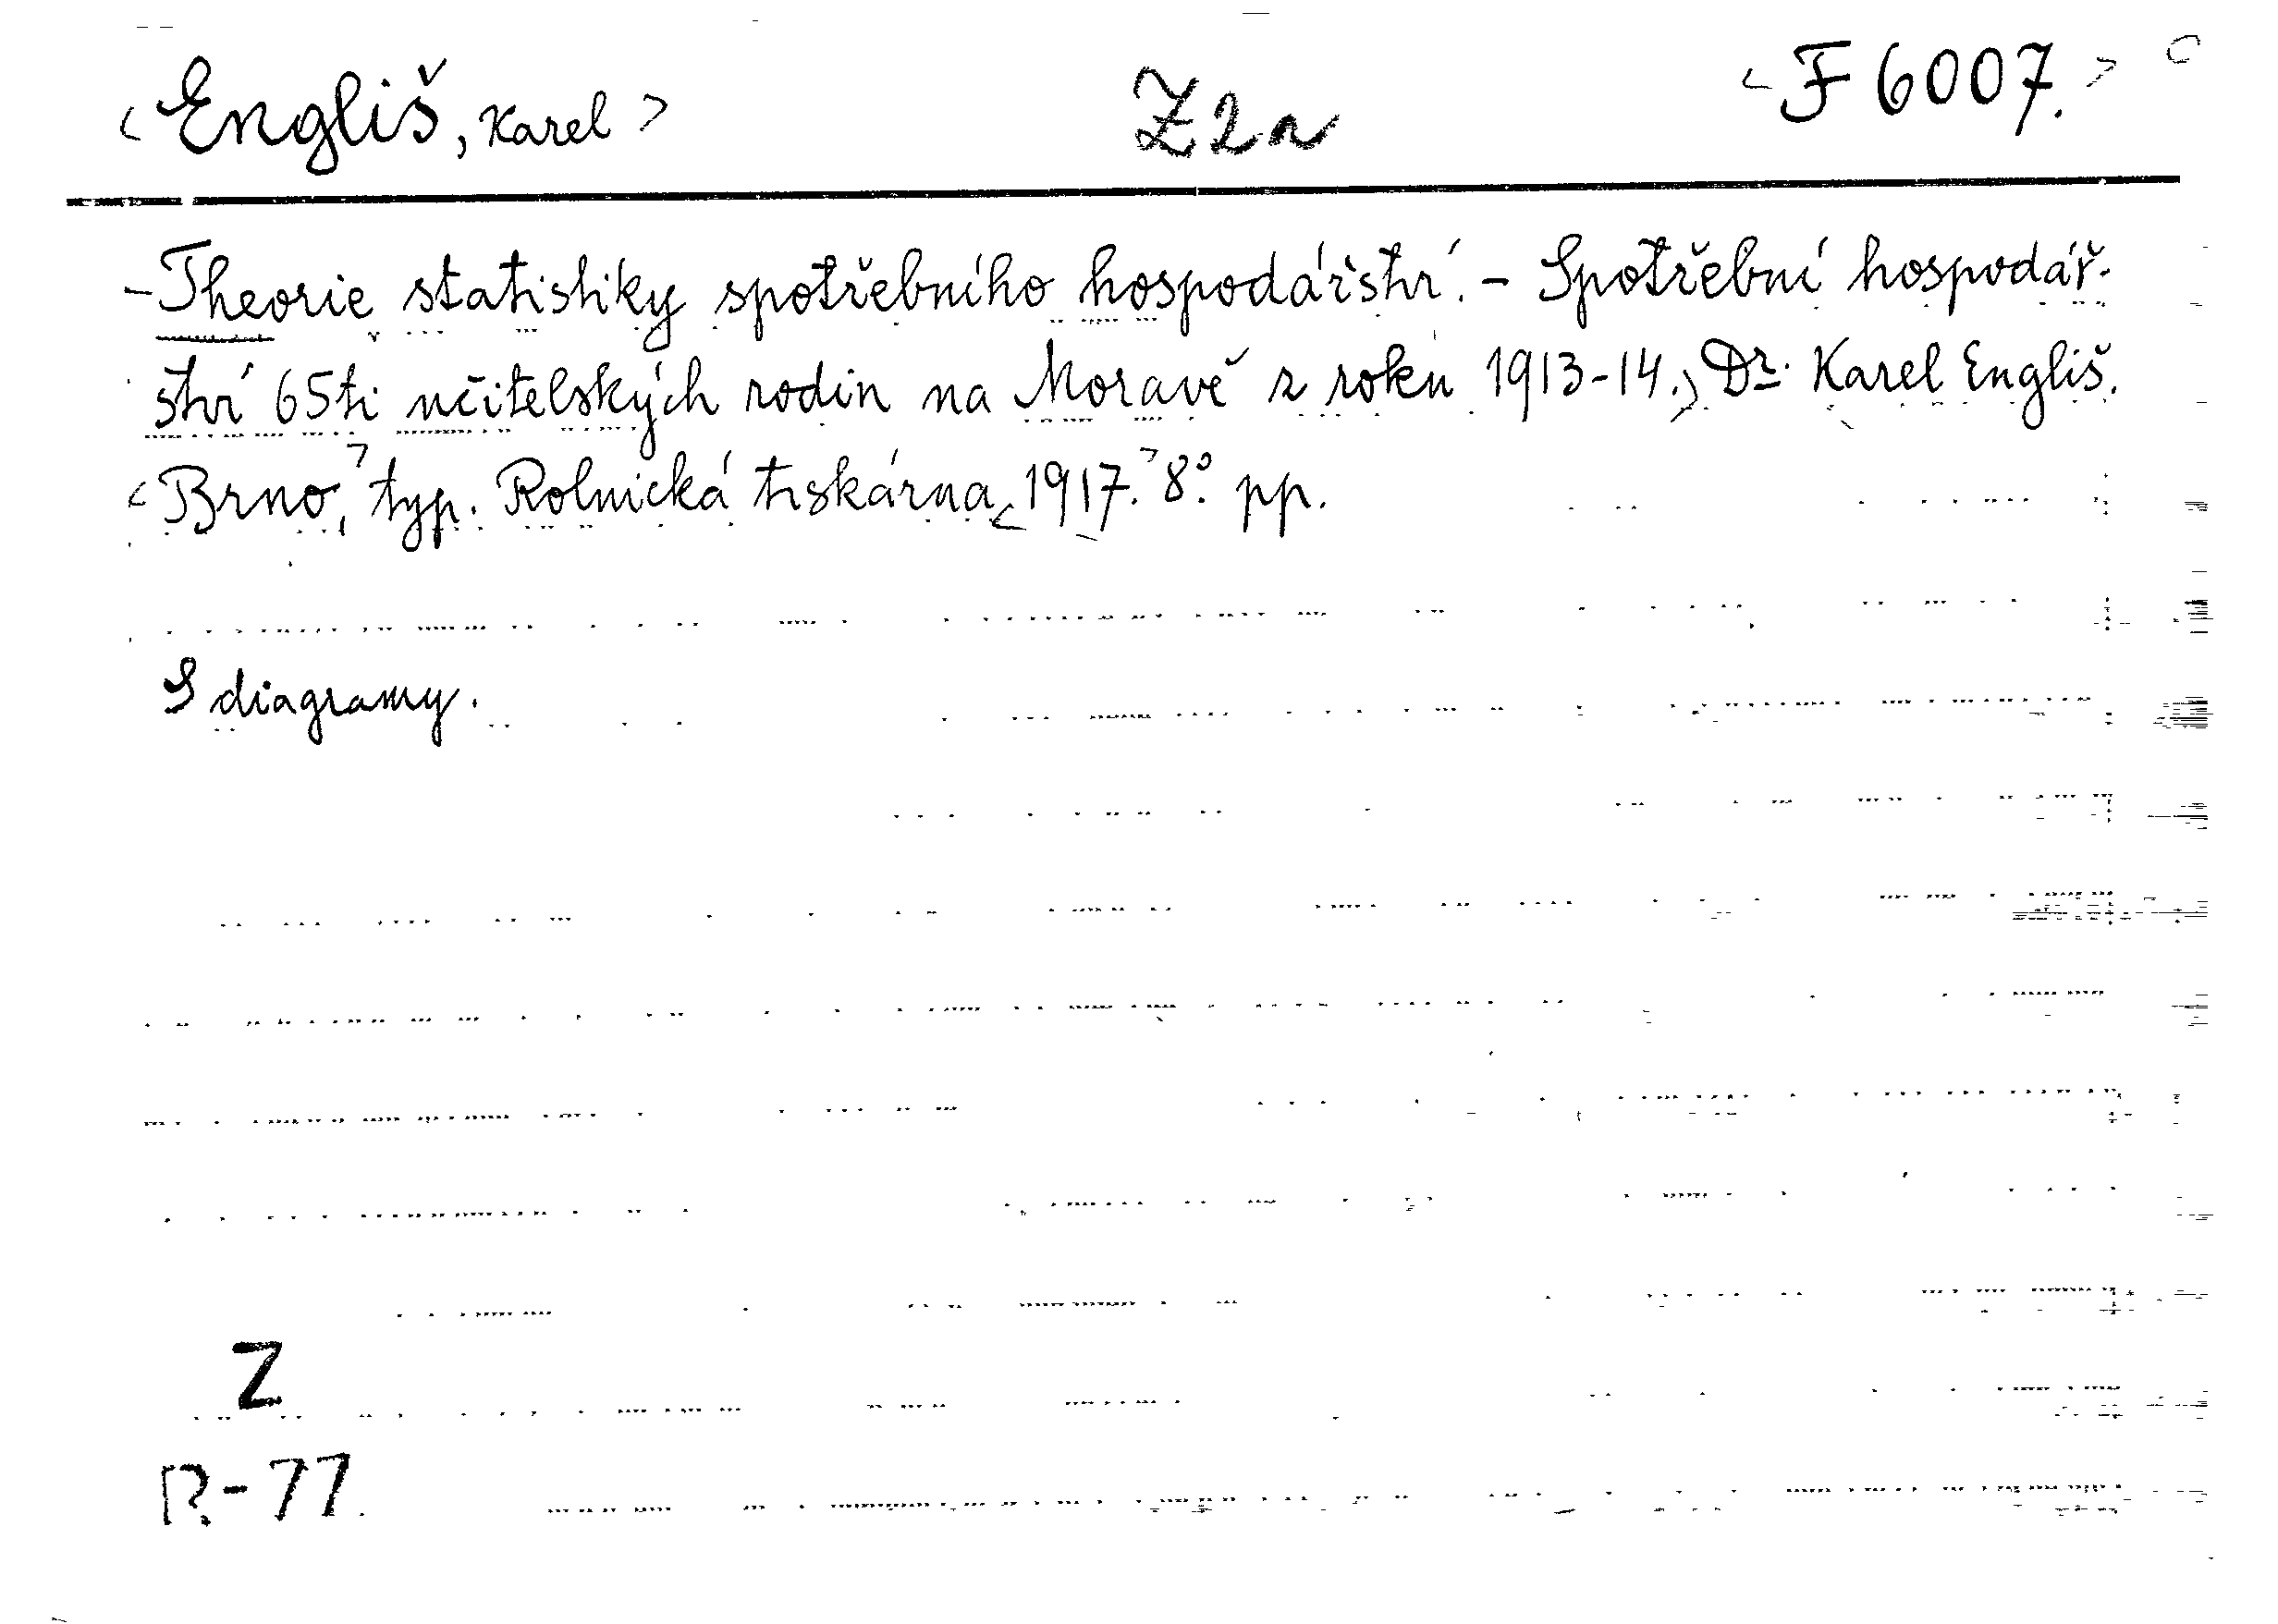 <Engliš, Karel> Z2a <F 6007.>
-Theorie statistiky spotřebního hospodářství. - Spotřební hospodář-
ství 65ti učitelských rodin na Moravě z roku 1913-14.> Dr. Karel Engliš.
<Brno,> typ. Rolnická tiskárna <1917.> 8° pp.
S diagramy.
Z
R-77.